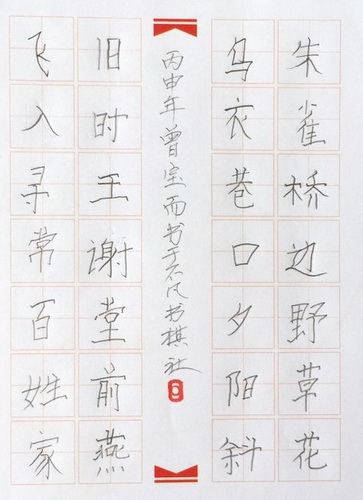 朱雀桥边野草花
乌衣巷口夕阳斜
旧时王谢堂前燕
飞入寻常百姓家
丙申年曾宝而书于不凡书棋社